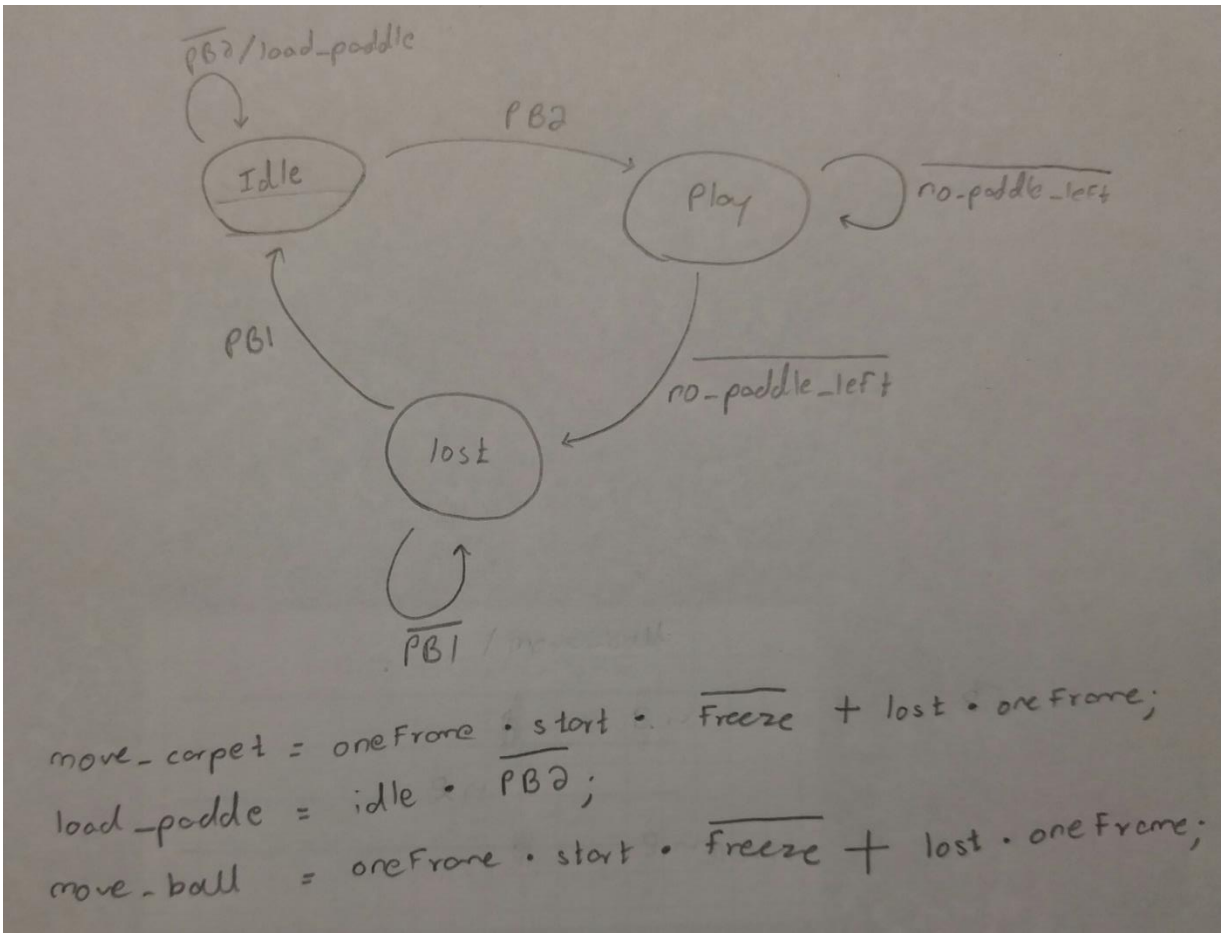 P̅B̅2̅/load_paddle
PB2
Idle
Play
n̅o̅-̅p̅a̅d̅d̅l̅e̅_̅l̅e̅f̅t̅
PB1
n̅o̅-̅p̅a̅d̅d̅l̅e̅_̅l̅e̅f̅t̅
lost
P̅B̅1̅
move_carpet = oneFrame · start · F̅r̅e̅e̅z̅e̅ + lost · oneFrame;
load_padde = idle · P̅B̅2̅;
move_ball = oneFrame · start · F̅r̅e̅e̅z̅e̅ + lost · oneFrame;